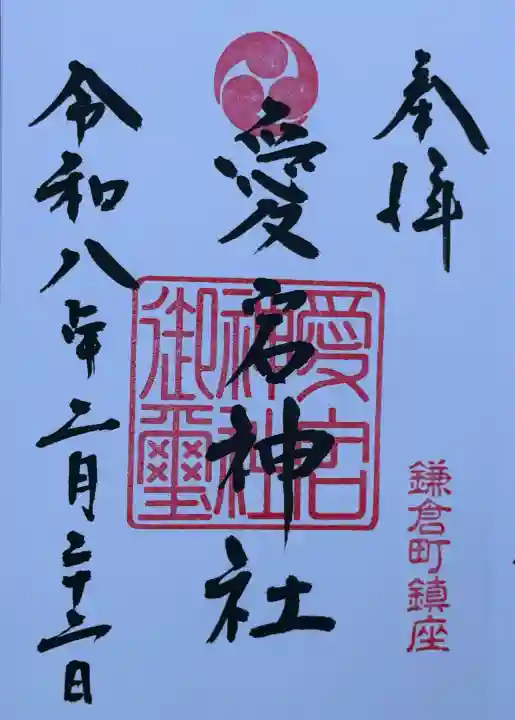 奉拝
鎌倉町鎮座
愛宕神社
愛宕
神社
御璽
令和八年二月二十三日